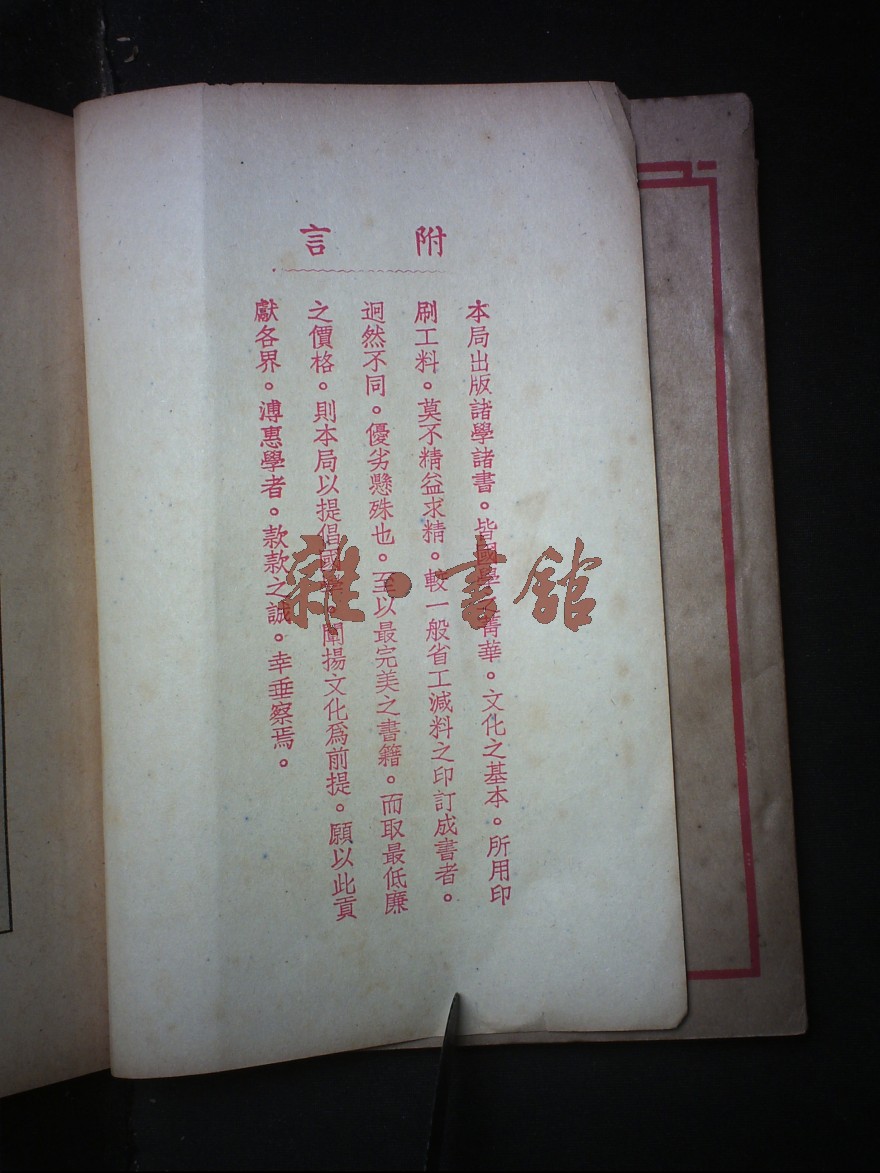 附言
本局出版諸學諸書。皆國學之菁華。文化之基本。所用印
刷工料。莫不精益求精。較一般省工減料之印訂成書者。
迥然不同。優劣懸殊也。至以最完美之書籍。而取最低廉
之價格。則本局以提倡國學。闡揚文化爲前提。願以此貢
獻各界。溥惠學者。款款之誠。幸垂察焉。
雜·書館